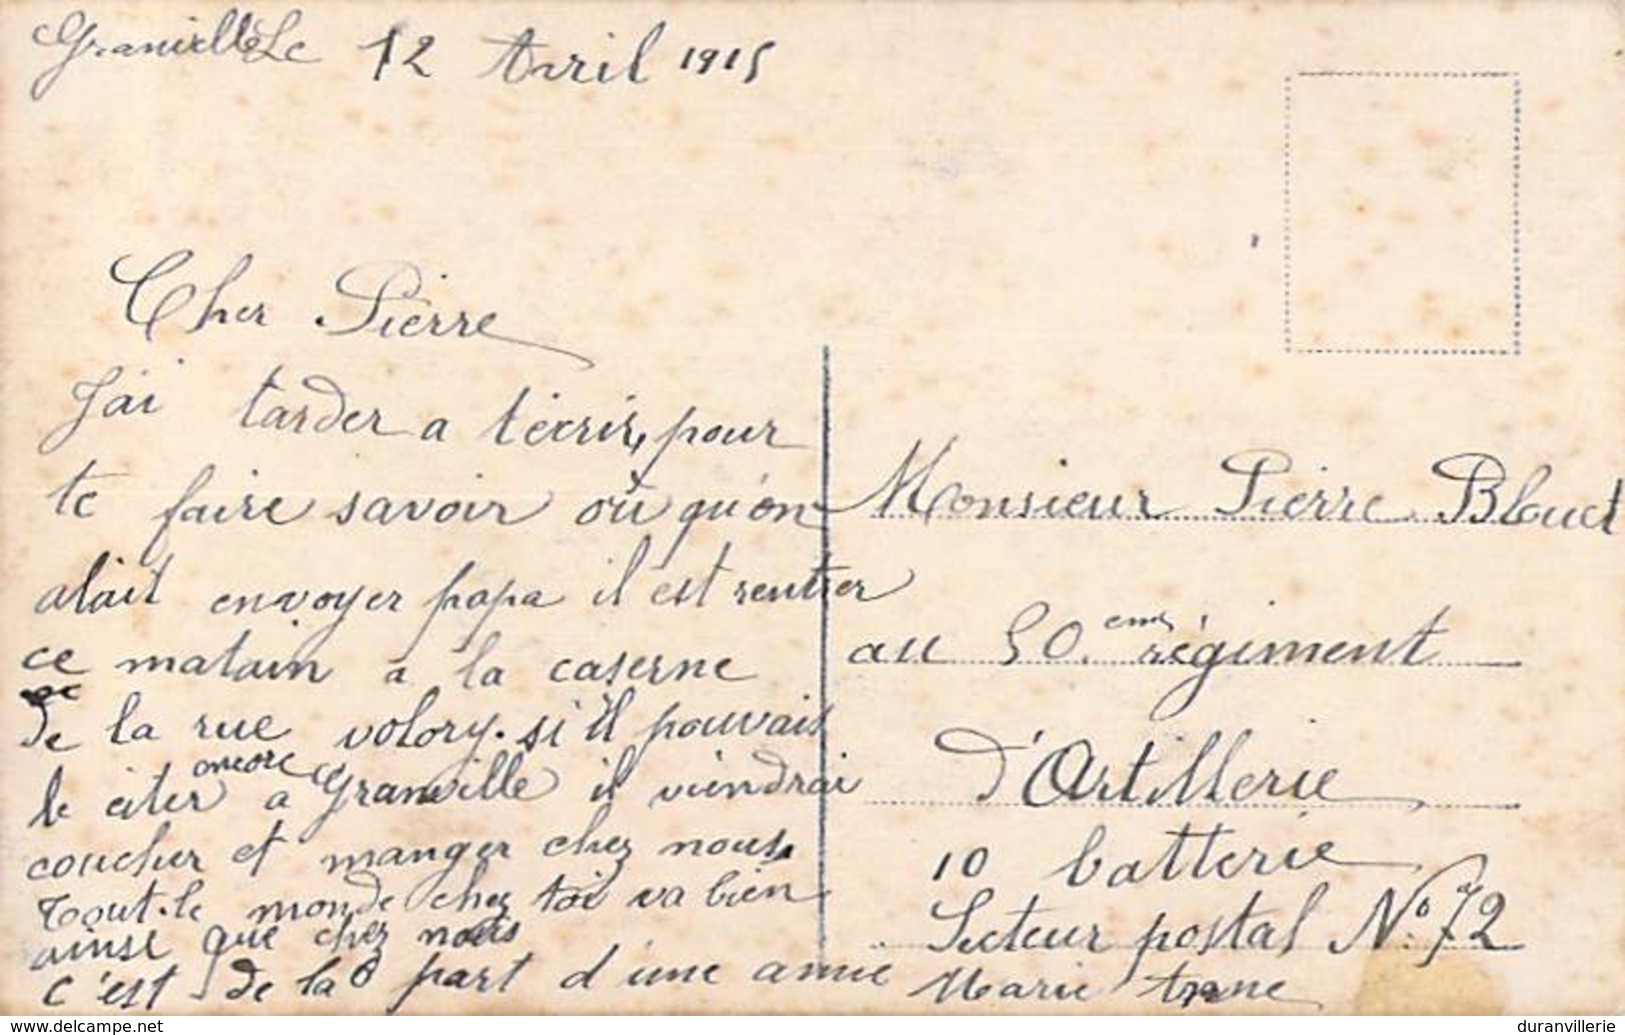 Granville Le 12 Avril 1915
Cher Pierre
J'ai tarder a t'écrir, pour
te faire savoir où qu'on
alait envoyer papa il est rentrer
ce matain a la caserne
de la rue volory. si il pouvais
le citer encore a Granville il viendrai
coucher et manger chez nous
Tout le monde chez toi va bien
ainse que chez nous
c'est de la part d'une amie
Marie Anne
Monsieur Pierre Blouet
au 50.eme régiment
d'Artillerie
10 batterie
Secteur postal No. 72
delcampe.net
duranvillerie